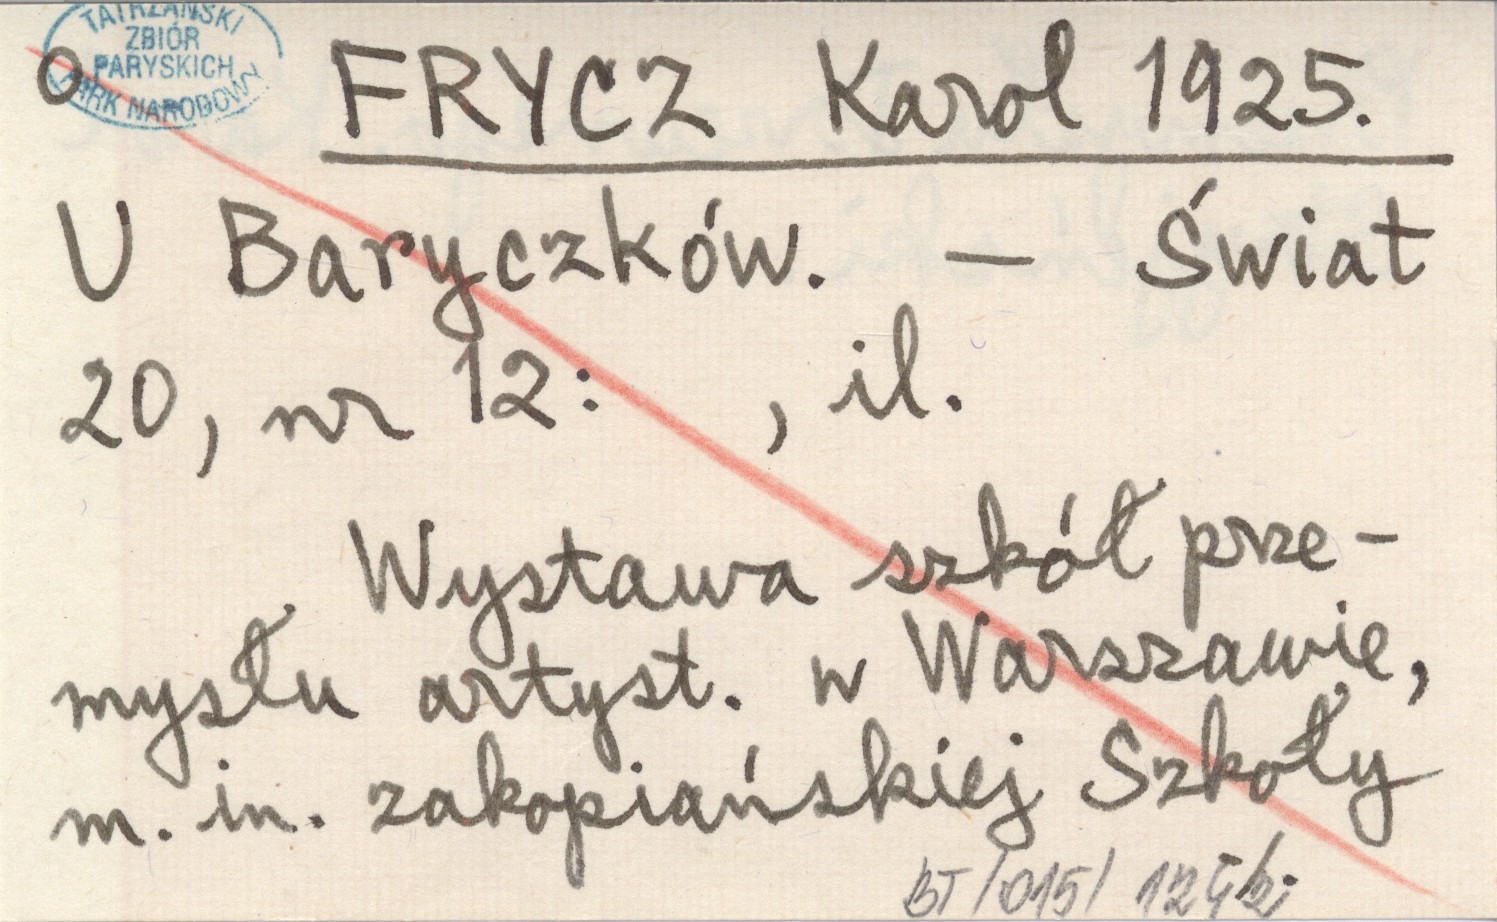 TATRZAŃSKI
ZBIÓR
PARYSKICH
PARK NARODOWY
o FRYCZ Karol 1925.
U Baryczków. — Świat
20, nr 12: , il.
Wystawa szkół prze-
mysłu artyst. w Warszawie,
m. in. zakopiańskiej Szkoły
BT/015/